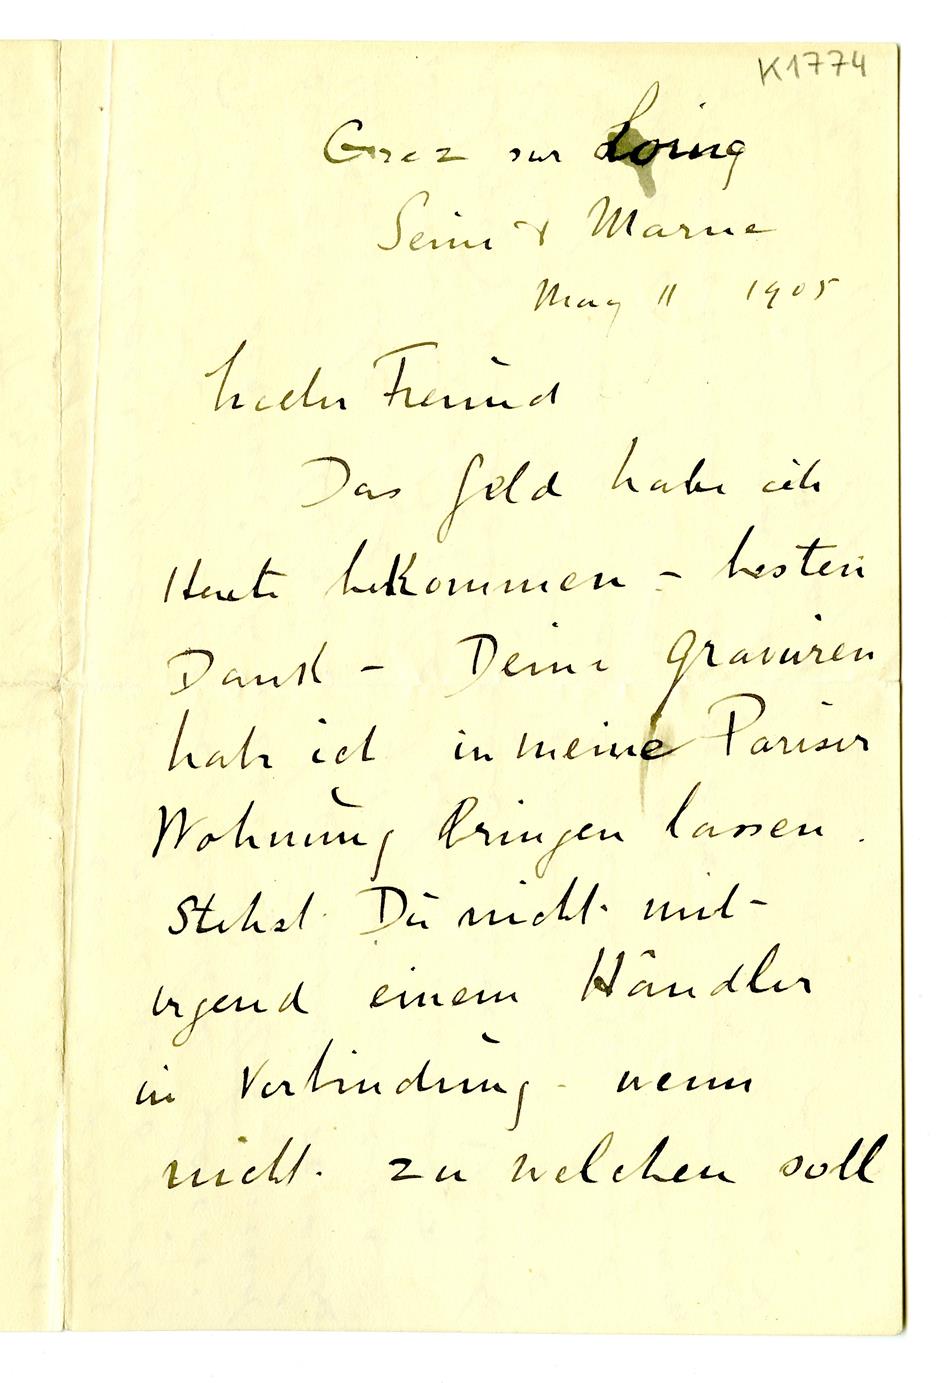 K1774
Grez sur Loing
Seine & Marne
May 11 1905
Lieber Freund
Das Geld habe ich
Heute bekommen – besten
Dank – Deine Gravüren
habe ich in meine Pariser
Wohnung bringen lassen.
Stehst Du nicht mit
irgend einem Händler
in Verbindung – wenn
nicht. zu welchen soll